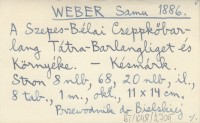 WEBER Samu 1886.
A Szepes-Bélai Cseppkőbar-
lang Tátra-Barlangliget és
Környéke. – Késmárk.
Stron 8 nlb, 68, 20 nlb, il.,
8 tab., 1 m., okł., 11 x 14 cm.
Przewodnik dr Bielskiej